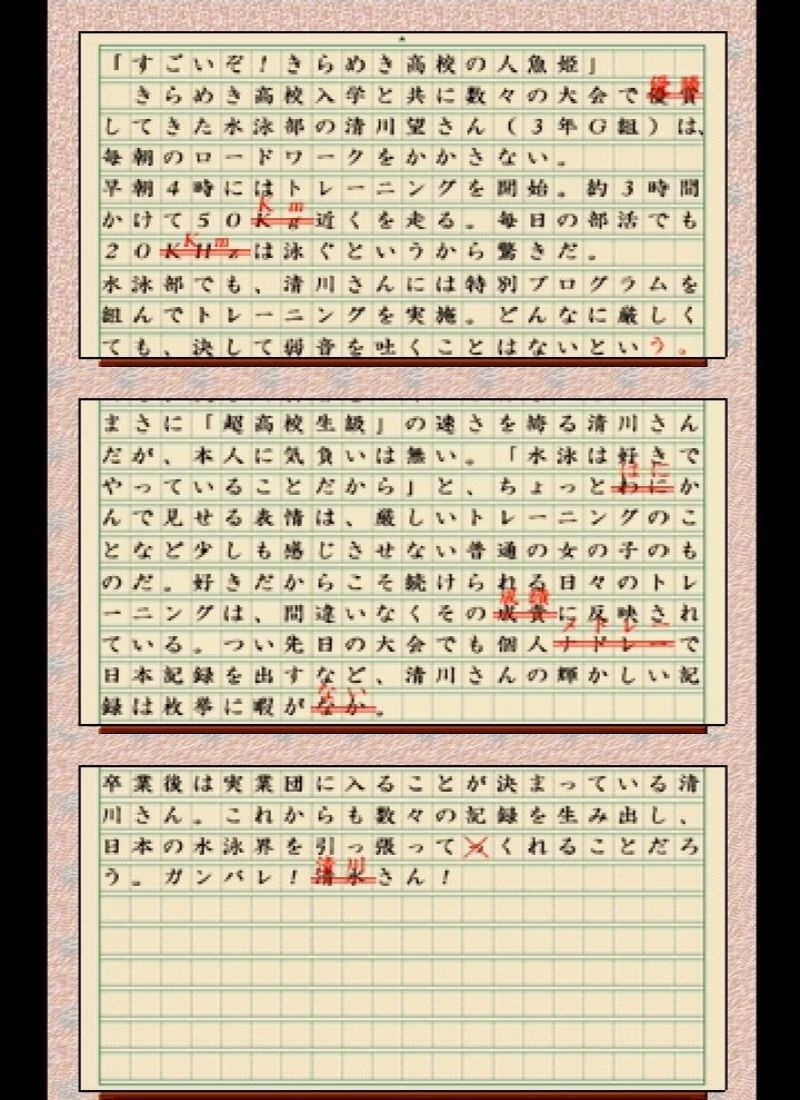 「すごいぞ！きらめき高校の人魚姫」
優勝
きらめき高校入学と共に数々の大会で優賞
してきた水泳部の清川望さん（３年Ｇ組）は、
毎朝のロードワークをかかさない。
早朝４時にはトレーニングを開始。約３時間
Ｋｍ
かけて５０Ｋｇ近くを走る。毎日の部活でも
Ｋｍ
２０ＫＨｚは泳ぐというから驚きだ。
水泳部でも、清川さんには特別プログラムを
組んでトレーニングを実施。どんなに厳しく
ても、決して弱音を吐くことはないという。
まさに「超高校生級」の速さを誇る清川さん
だが、本人に気負いは無い。「水泳は好きで
はに
やっていることだから」と、ちょっとわにか
んで見せる表情は、厳しいトレーニングのこ
となど少しも感じさせない普通の女の子のも
のだ。好きだからこそ続けられる日々のトレ
成績
ーニングは、間違いなくその成責に反映され
メドレー
ている。つい先日の大会でも個人ナドレーで
日本記録を出すなど、清川さんの輝かしい記
ない
録は枚挙に暇がなか。
卒業後は実業団に入ることが決まっている清
川さん。これからも数々の記録を生み出し、
日本の水泳界を引っ張ってくれることだろ
清川
う。ガンバレ！清水さん！